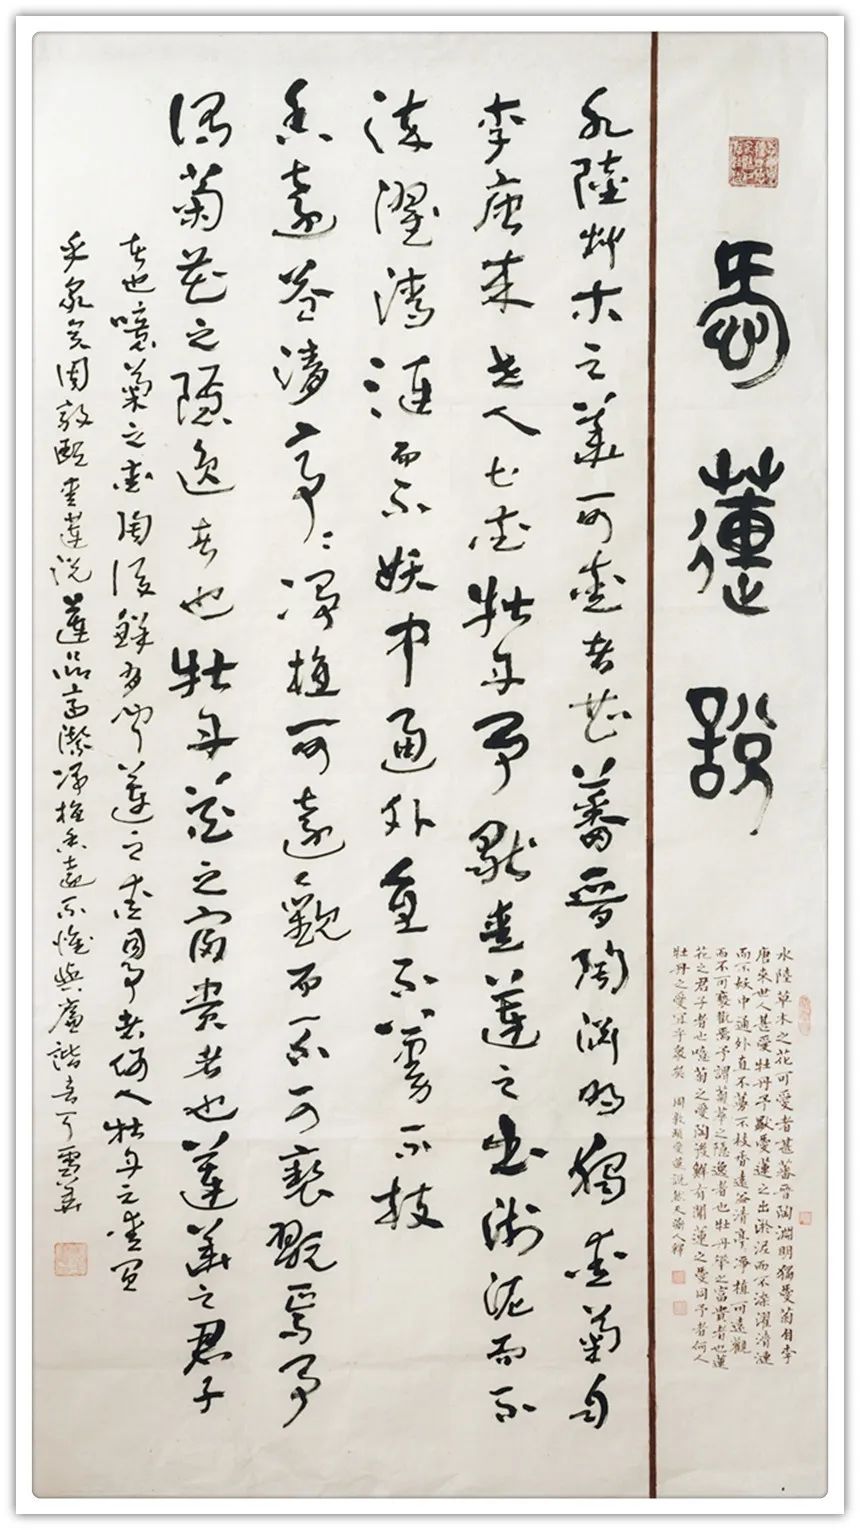 愛蓮説
水陸草木之花可愛者甚蕃晉陶淵明獨愛菊自李
唐來世人甚愛牡丹予獨愛蓮之出淤泥而不染濯清漣
而不妖中通外直不蔓不枝香遠益清亭淨植可遠觀
而不可褻翫焉予謂菊華之隱逸者也牡丹華之富貴者也蓮
花之君子者也噫菊之愛陶後鮮有聞蓮之愛同予者何人
牡丹之愛宜乎衆矣 周敦頤愛蓮説 人釋
水陸艸木之華可愛者甚蕃晉陶淵明獨愛菊自
李唐來世人甚愛牡丹予獨愛蓮之出淤泥而不
染濯清漣而不妖中通外直不蔓不枝
香遠益清亭〻淨植可遠觀而不可褻翫焉予
謂菊花之隱逸者也牡丹花之富貴者也蓮華之君子
者也噫菊之愛陶後鮮有聞蓮之愛同予者何人牡丹之愛宜
乎衆矣周敦頤愛蓮説蓮品高潔淨植香遠不惟與廉諧音